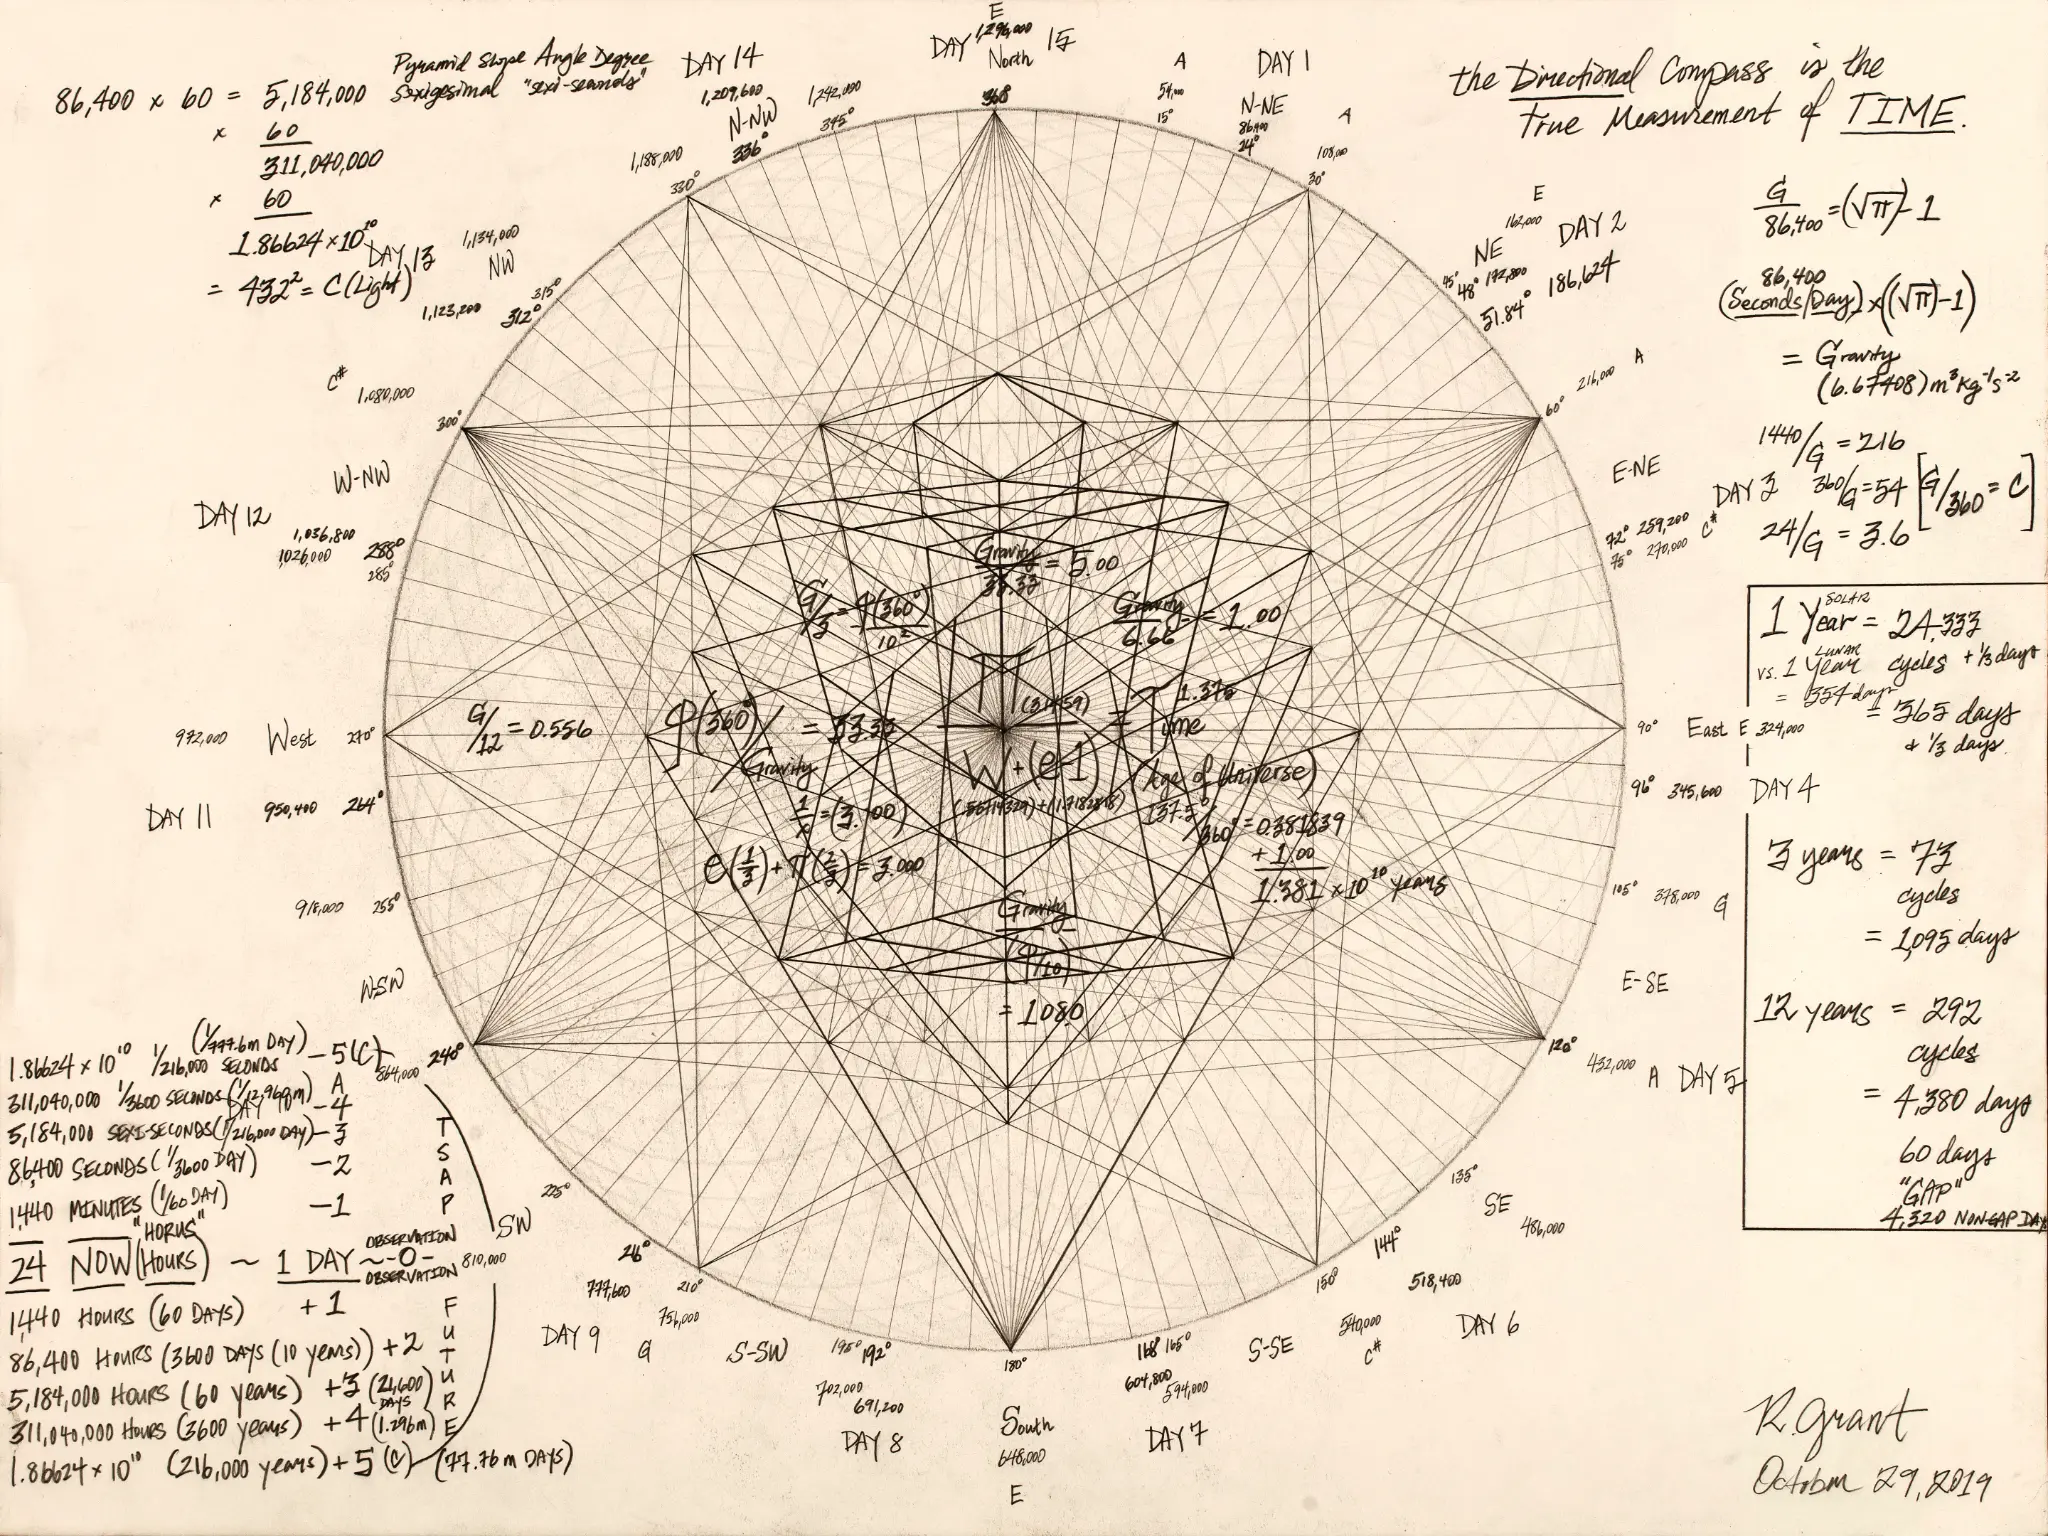 86,400 x 60 = 5,184,000
Pyramid Slope Angle Degree
Sexigesimal "sexi-seconds"
x 60
311,040,000
x 60
1.86624 x 10¹⁰
= 432² = C (Light)
DAY 14
1,209,600
N-NW
336°
1,242,000
345°
1,188,000
330°
E
1,296,000
DAY 15
North
360°
A
54,000
15°
DAY 1
N-NE
86,400
24°
A
108,000
30°
the Directional Compass is the
True Measurement of TIME.
E
162,000
DAY 2
NE
45°
48° 172,800
51.84° 186,624
G/86,400 = (√π) - 1
86,400
(Seconds/Day) x ((√π) - 1)
= Gravity
(6.67408) m³ kg⁻¹ s⁻²
1440/G = 216
360/G = 54 [G/360 = C]
24/G = 3.6
A
216,000
60°
E-NE
DAY 3
72° 259,200
75° 270,000 C#
DAY 13
1,134,000
NW
315°
1,123,200 312°
C#
1,080,000
300°
W-NW
DAY 12
1,036,800 288°
1,026,000 285°
972,000 West 270°
DAY 11 950,400 264°
918,000 255°
W-SW
240°
864,000
Gravity/33.33 = 5.00
Gravity/6.66 = 1.00
10²
G/12 = 0.556
(360°)/Gravity = 33.33
π (3.14159)
W + (e-1)
= Time 1.375
(Age of Universe)
137.5°/360° = 0.381839
+ 1.00
1.381 x 10¹⁰ years
1/x = (3.00)
e(1/3) + π(2/3) = 3.000
Gravity
= 1080
90° East E 324,000
96° 345,600 DAY 4
105° 378,000 G
E-SE
120°
432,000 A DAY 5
1 SOLAR Year = 24.333
vs. 1 LUNAR Year cycles + 1/3 days
= 354 days
= 365 days
+ 1/3 days
3 years = 73
cycles
= 1,095 days
12 years = 292
cycles
= 4,380 days
60 days
"GAP"
4,320 NON-GAP DAY
135°
SE
486,000
144°
518,400
DAY 6
150°
540,000
C#
S-SE
168° 165°
604,800
594,000
DAY 7
180°
South
648,000
E
195° 192°
702,000
691,200
DAY 8
S-SW
210°
756,000
G
216°
777,600
DAY 9
225°
SW
810,000
1.86624 x 10¹⁰ 1/216,000 SECONDS (1/777.6m DAY) - 5 (C)
311,040,000 1/3600 SECONDS (1/12.96m) A
DAY 10
- 4
5,184,000 SEXI-SECONDS (1/216,000 DAY) - 3
86,400 SECONDS (1/3600 DAY) - 2
1,440 MINUTES (1/60 DAY) - 1
"HORUS"
24 NOW (HOURS) ~ 1 DAY ~ -0-
OBSERVATION
OBSERVATION
1,440 HOURS (60 DAYS) + 1
86,400 HOURS (3600 DAYS (10 years)) + 2
5,184,000 HOURS (60 years) + 3 (21,600 DAYS)
311,040,000 HOURS (3600 years) + 4 (1.296m)
1.86624 x 10¹⁰ (216,000 years) + 5 (C) (77.76m DAYS)
T
S
A
P
F
U
T
U
R
E
R. Grant
October 29, 2019